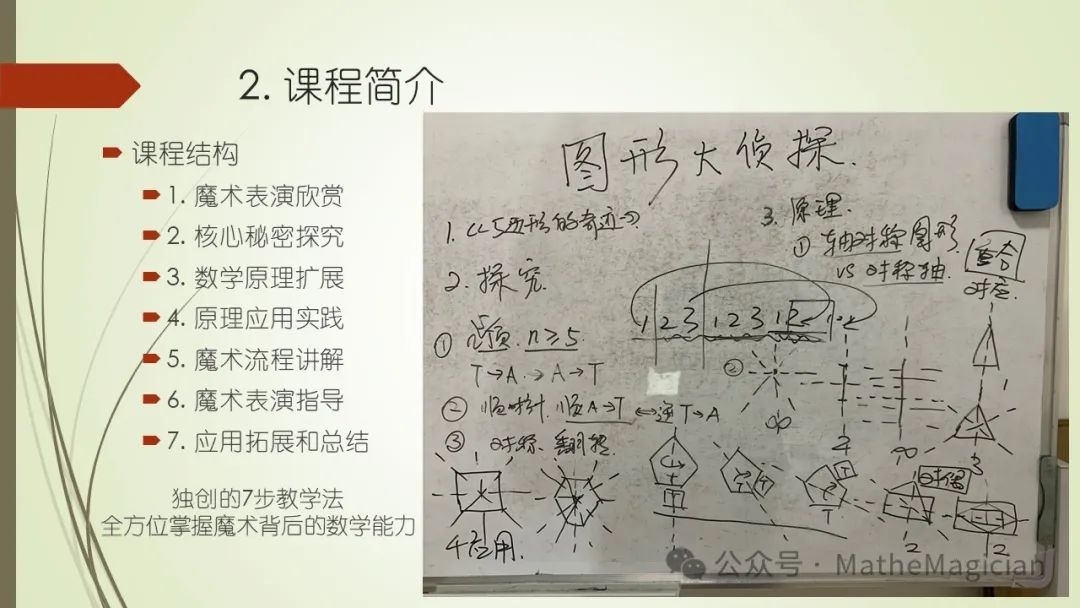 2. 课程简介
课程结构
1. 魔术表演欣赏
2. 核心秘密探究
3. 数学原理扩展
4. 原理应用实践
5. 魔术流程讲解
6. 魔术表演指导
7. 应用拓展和总结
独创的7步教学法
全方位掌握魔术背后的数学能力
图形大侦探.
1. <<5边形的奇迹>>
2. 探究
① n≥5.
T→A → A→T
② 顺时针. 顺A→T ⟷逆T→A
③ 对称. 翻转.
4应用.
3. 原理.
① 轴对称图形
vs 对称轴.
重合
对应.
1 2 3 1 2 3 1 2
②
∞
3
对偶
T
2
2
公众号 · MatheMagician